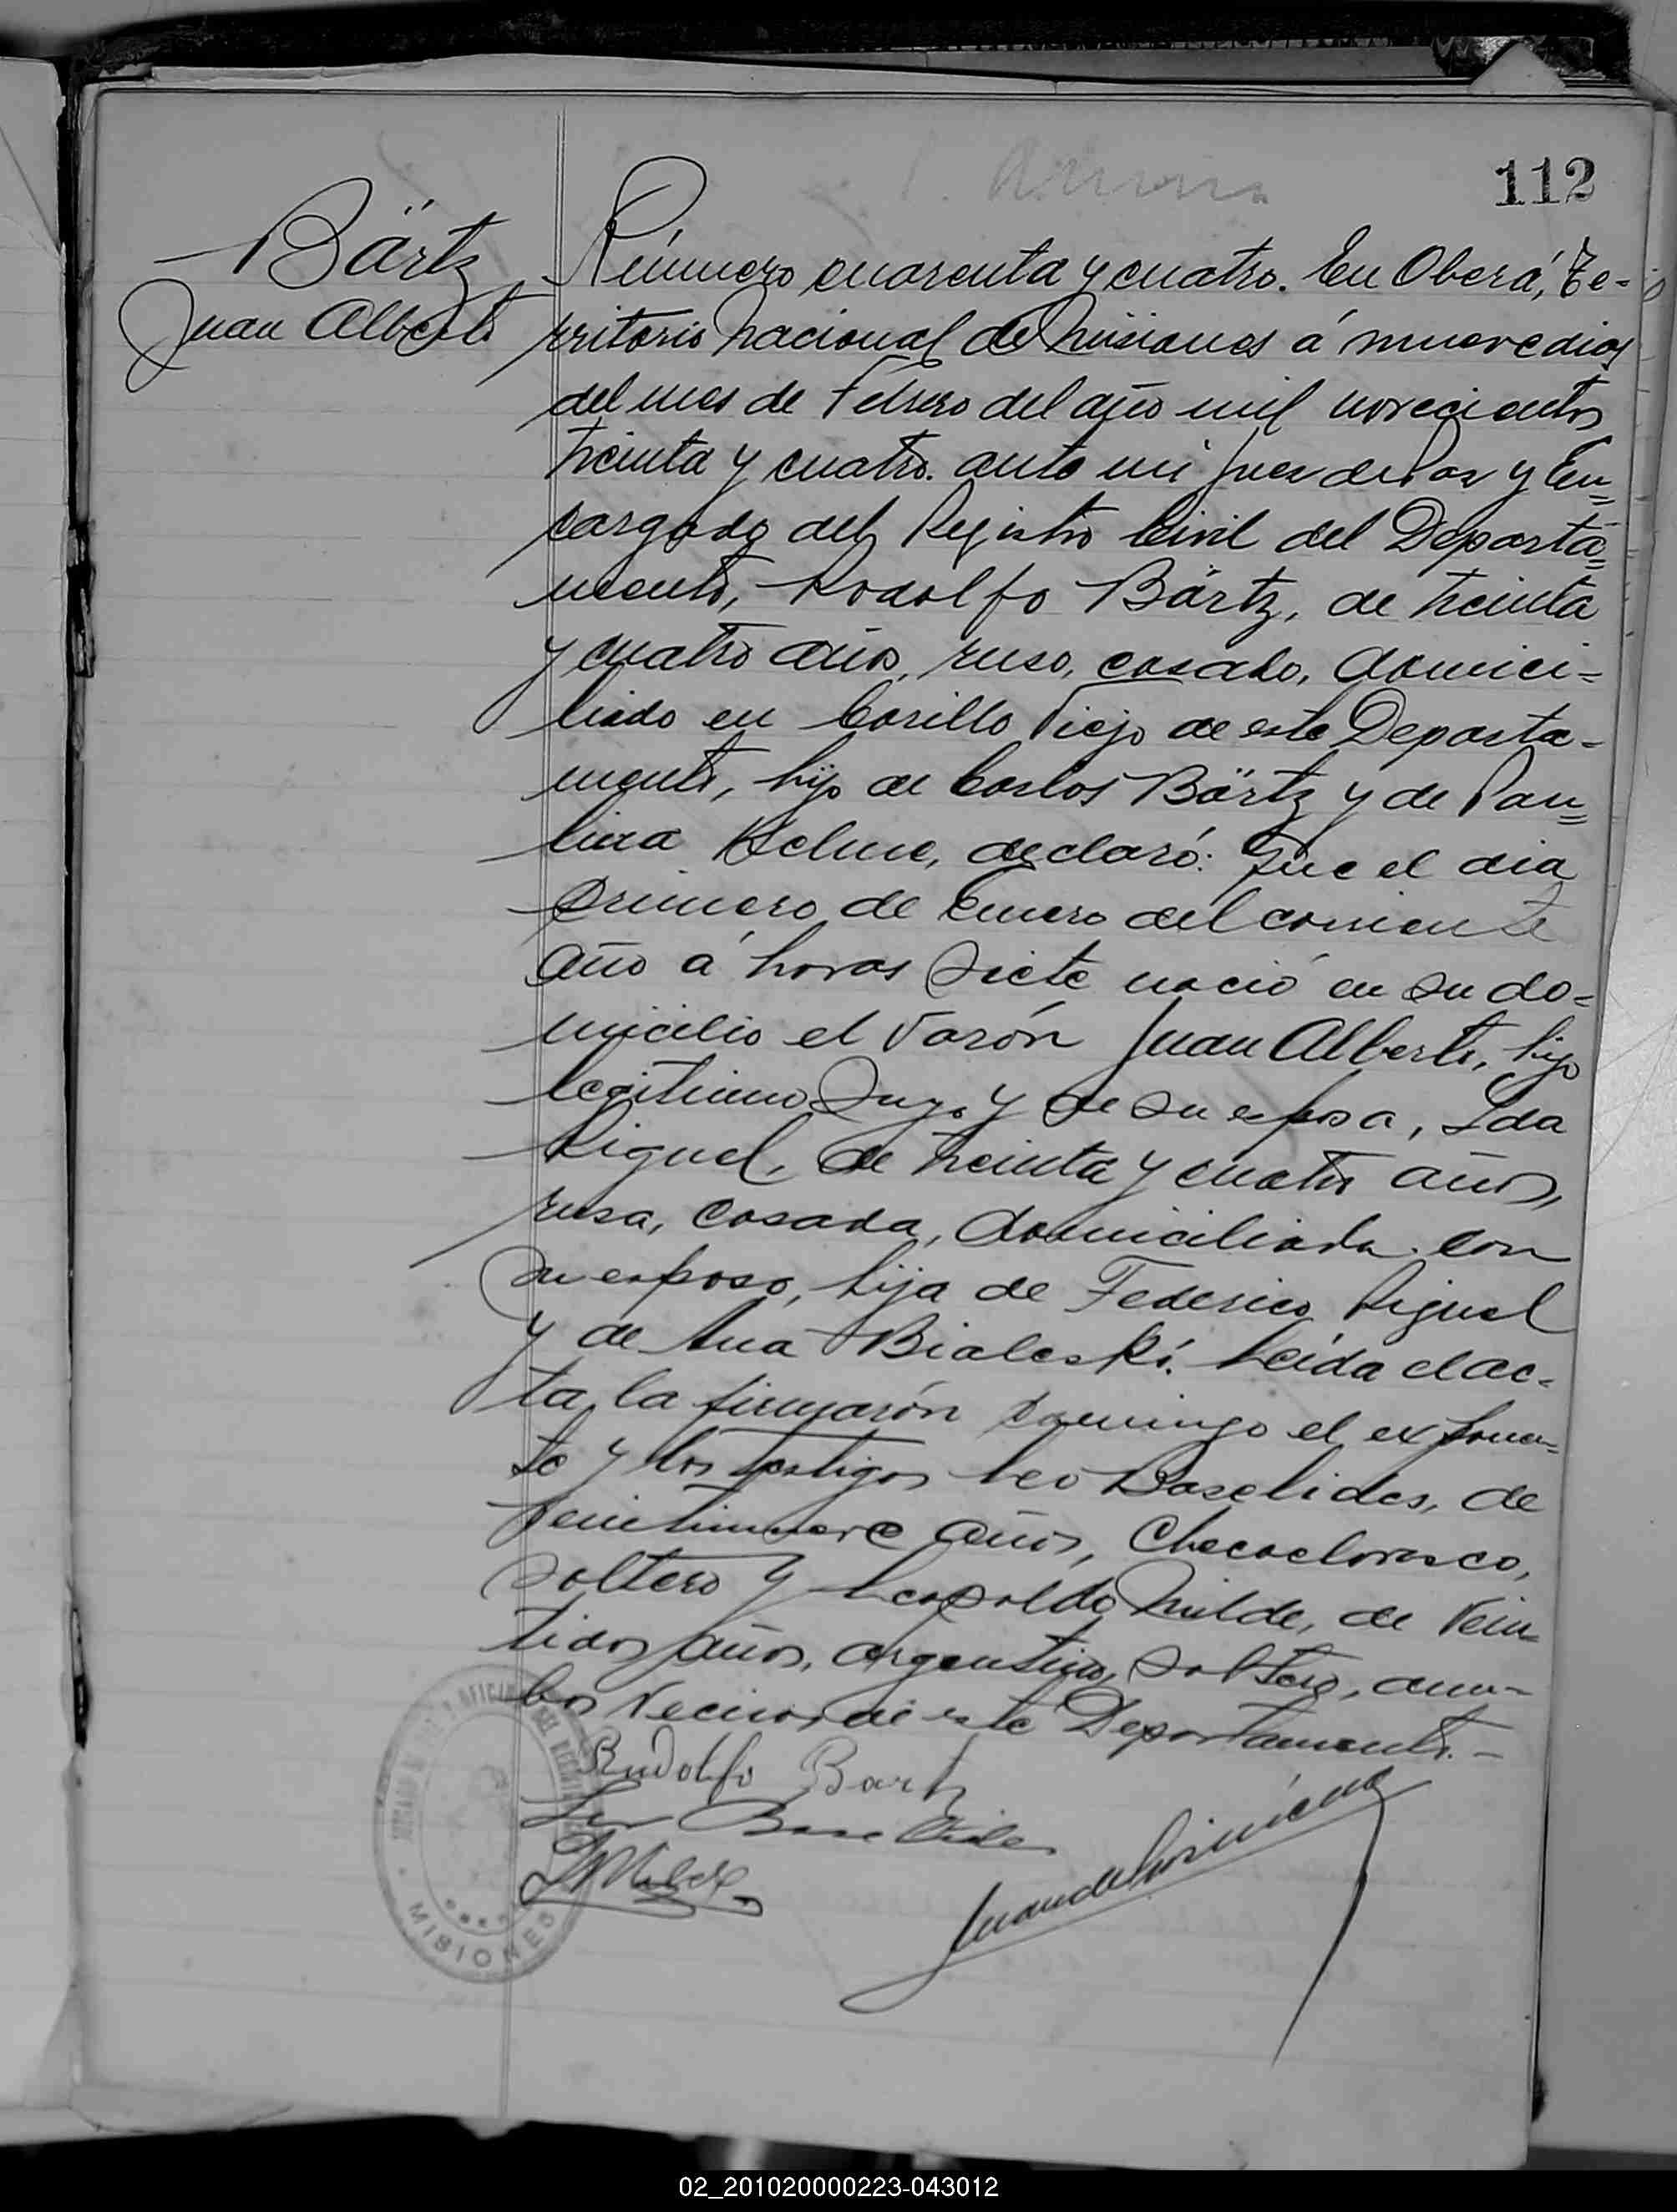 112
Bärtz
Juan Alberto
Número cuarenta y cuatro. En Oberá, Te-
rritorio Nacional de Misiones á nueve dias
del mes de Febrero del año mil novecientos
treinta y cuatro. ante mi Juez de Paz y En=
cargado del Registro Civil del Departa=
mento, Rodolfo Bärtz, de treinta
y cuatro años, ruso, casado, domici-
liado en Cerillo Viejo de este Departa-
mento, hijo de Carlos Bärtz y de Pau=
lina Helme, declaró: Que el dia
primero de Enero del corriente
año á horas siete nació en su do-
micilio el varón Juan Alberto, hijo
legitimo suyo y de su esposa, Ida
Riguel, de treinta y cuatro años,
rusa, casada, domiciliada con
su esposo, hija de Federico Riguel
y de Ana Bialeski. Leida el ac-
ta la firmarón conmigo el exponen-
te y los testigos Leo Baselides, de
veintinueve años, Checoeslovaco,
soltero y Leopoldo Milde, de vein-
tidos años, argentino, soltero, am-
bos vecinos de este Departamento.-
Rudolfo Bartz
Leo Baselides
L Milde
MISIONES
02_201020000223-043012